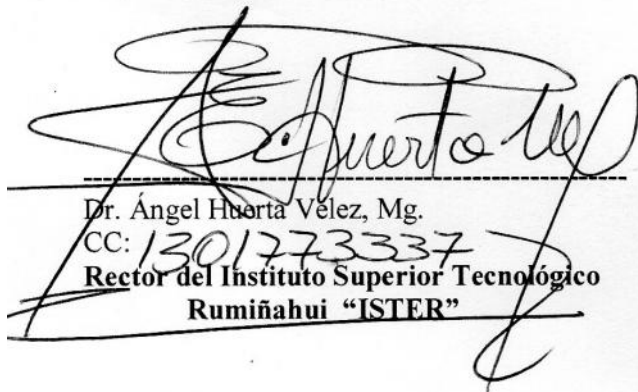 E. Huerta Vel
Dr. Ángel Huerta Vélez, Mg.
CC: 1301773337
Rector del Instituto Superior Tecnológico
Rumiñahui “ISTER”